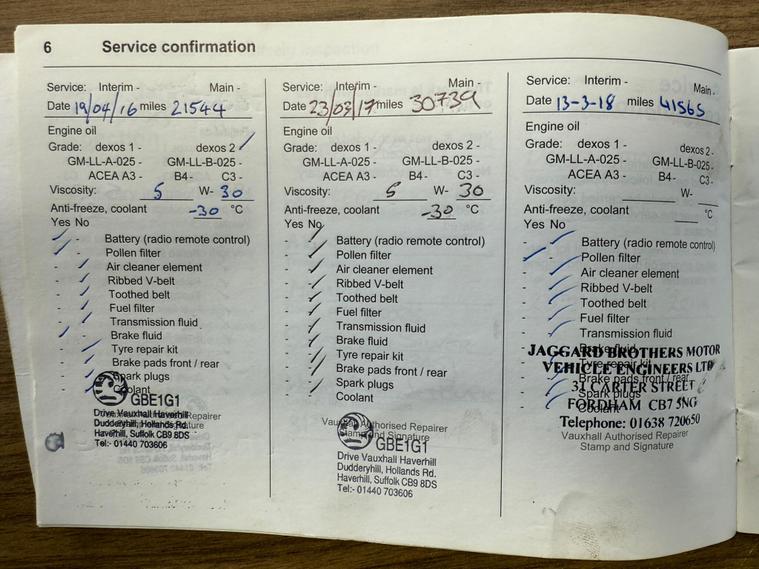 6 Service confirmation
Service: Interim - Main -
Date 19/04/16 miles 21544
Engine oil
Grade: dexos 1 - dexos 2 - ✓
GM-LL-A-025 - GM-LL-B-025 -
ACEA A3 - B4 - C3 -
Viscosity: 5 W- 30
Anti-freeze, coolant -30 °C
Yes No
✓ - Battery (radio remote control)
✓ - Pollen filter
- ✓ Air cleaner element
- ✓ Ribbed V-belt
- ✓ Toothed belt
- ✓ Fuel filter
- ✓ Transmission fluid
✓ - Brake fluid
- ✓ Tyre repair kit
- ✓ Brake pads front / rear
- ✓ Spark plugs
Coolant
GBE1G1
Drive Vauxhall Haverhill
Dudderyhill, Hollands Rd.
Haverhill, Suffolk CB9 8DS
Tel:- 01440 703606
Service: Interim - Main -
Date 23/03/17 miles 30739
Engine oil
Grade: dexos 1 - dexos 2 -
GM-LL-A-025 - GM-LL-B-025 -
ACEA A3 - B4 - C3 -
Viscosity: 5 W- 30
Anti-freeze, coolant -30 °C
Yes No
- ✓ Battery (radio remote control)
- ✓ Pollen filter
- ✓ Air cleaner element
- ✓ Ribbed V-belt
- ✓ Toothed belt
- ✓ Fuel filter
- ✓ Transmission fluid
- ✓ Brake fluid
- ✓ Tyre repair kit
- ✓ Brake pads front / rear
- ✓ Spark plugs
Coolant
Vauxhall Authorised Repairer
Stamp and Signature
GBE1G1
Drive Vauxhall Haverhill
Dudderyhill, Hollands Rd.
Haverhill, Suffolk CB9 8DS
Tel:- 01440 703606
Service: Interim - Main -
Date 13-3-18 miles 41565
Engine oil
Grade: dexos 1 - dexos 2 -
GM-LL-A-025 - GM-LL-B-025 -
ACEA A3 - B4 - C3 -
Viscosity: W-
Anti-freeze, coolant °C
Yes No
- ✓ Battery (radio remote control)
✓ - Pollen filter
- ✓ Air cleaner element
- ✓ Ribbed V-belt
- ✓ Toothed belt
- ✓ Fuel filter
- ✓ Transmission fluid
Brake fluid
Tyre repair kit
Brake pads front / rear
Spark plugs
Coolant
JAGGARD BROTHERS MOTOR
VEHICLE ENGINEERS LTD
31 CARTER STREET
FORDHAM CB7 5NG
Telephone: 01638 720650
Vauxhall Authorised Repairer
Stamp and Signature